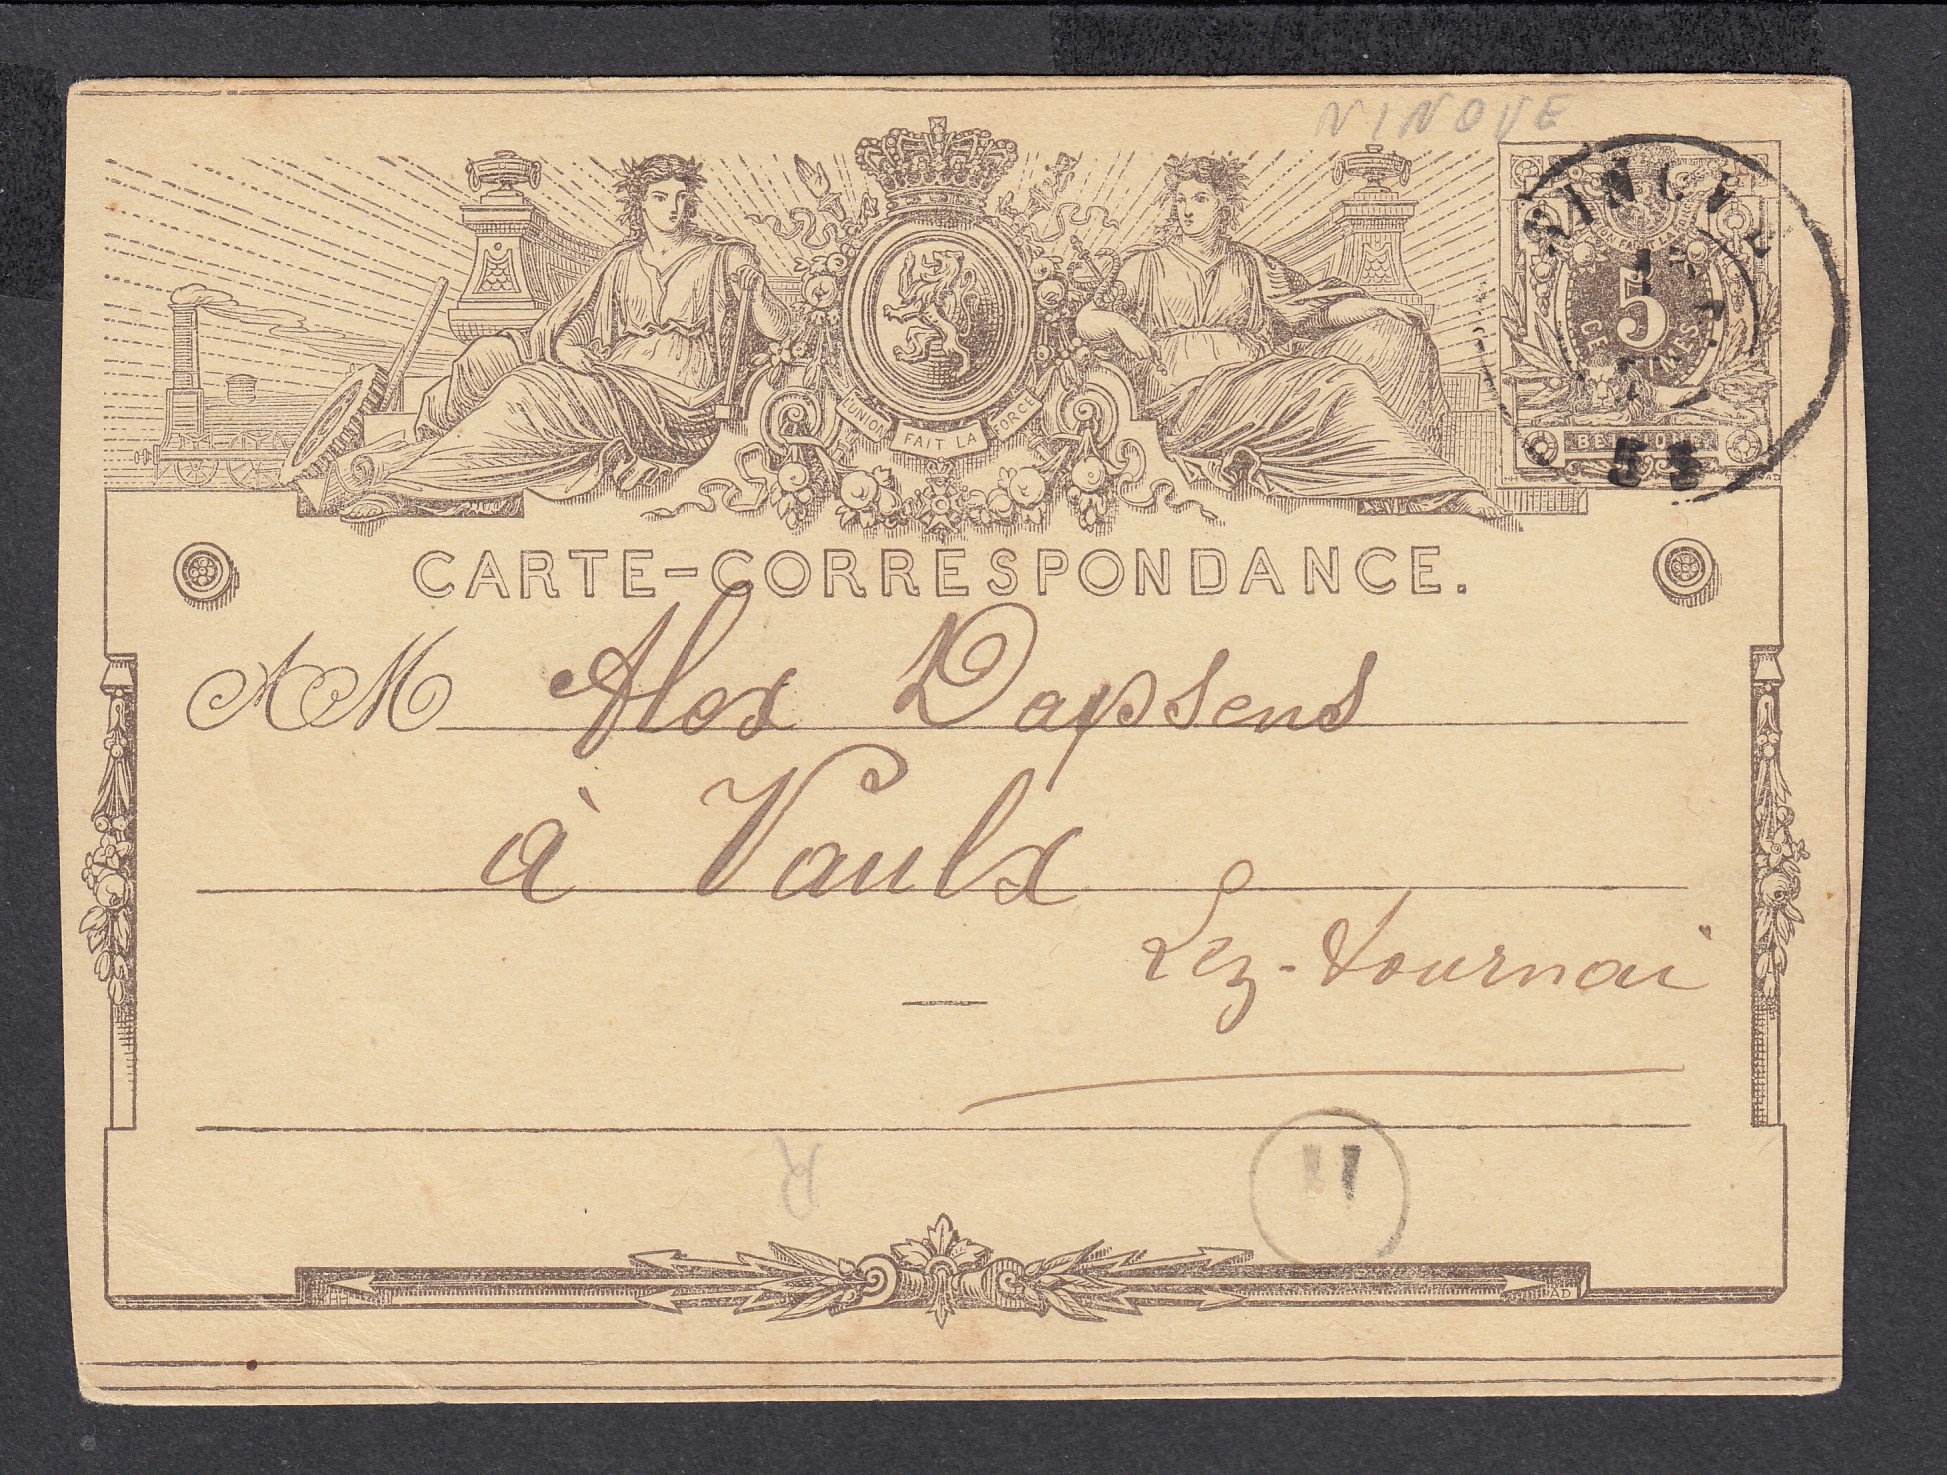 NINOVE
NINOVE
L'UNION FAIT LA FORCE
5
CENTIMES
BELGIQUE
CARTE-CORRESPONDANCE.
A M Alex Dapsens
à Vaulx
Lez-Tournai
R
11
AD